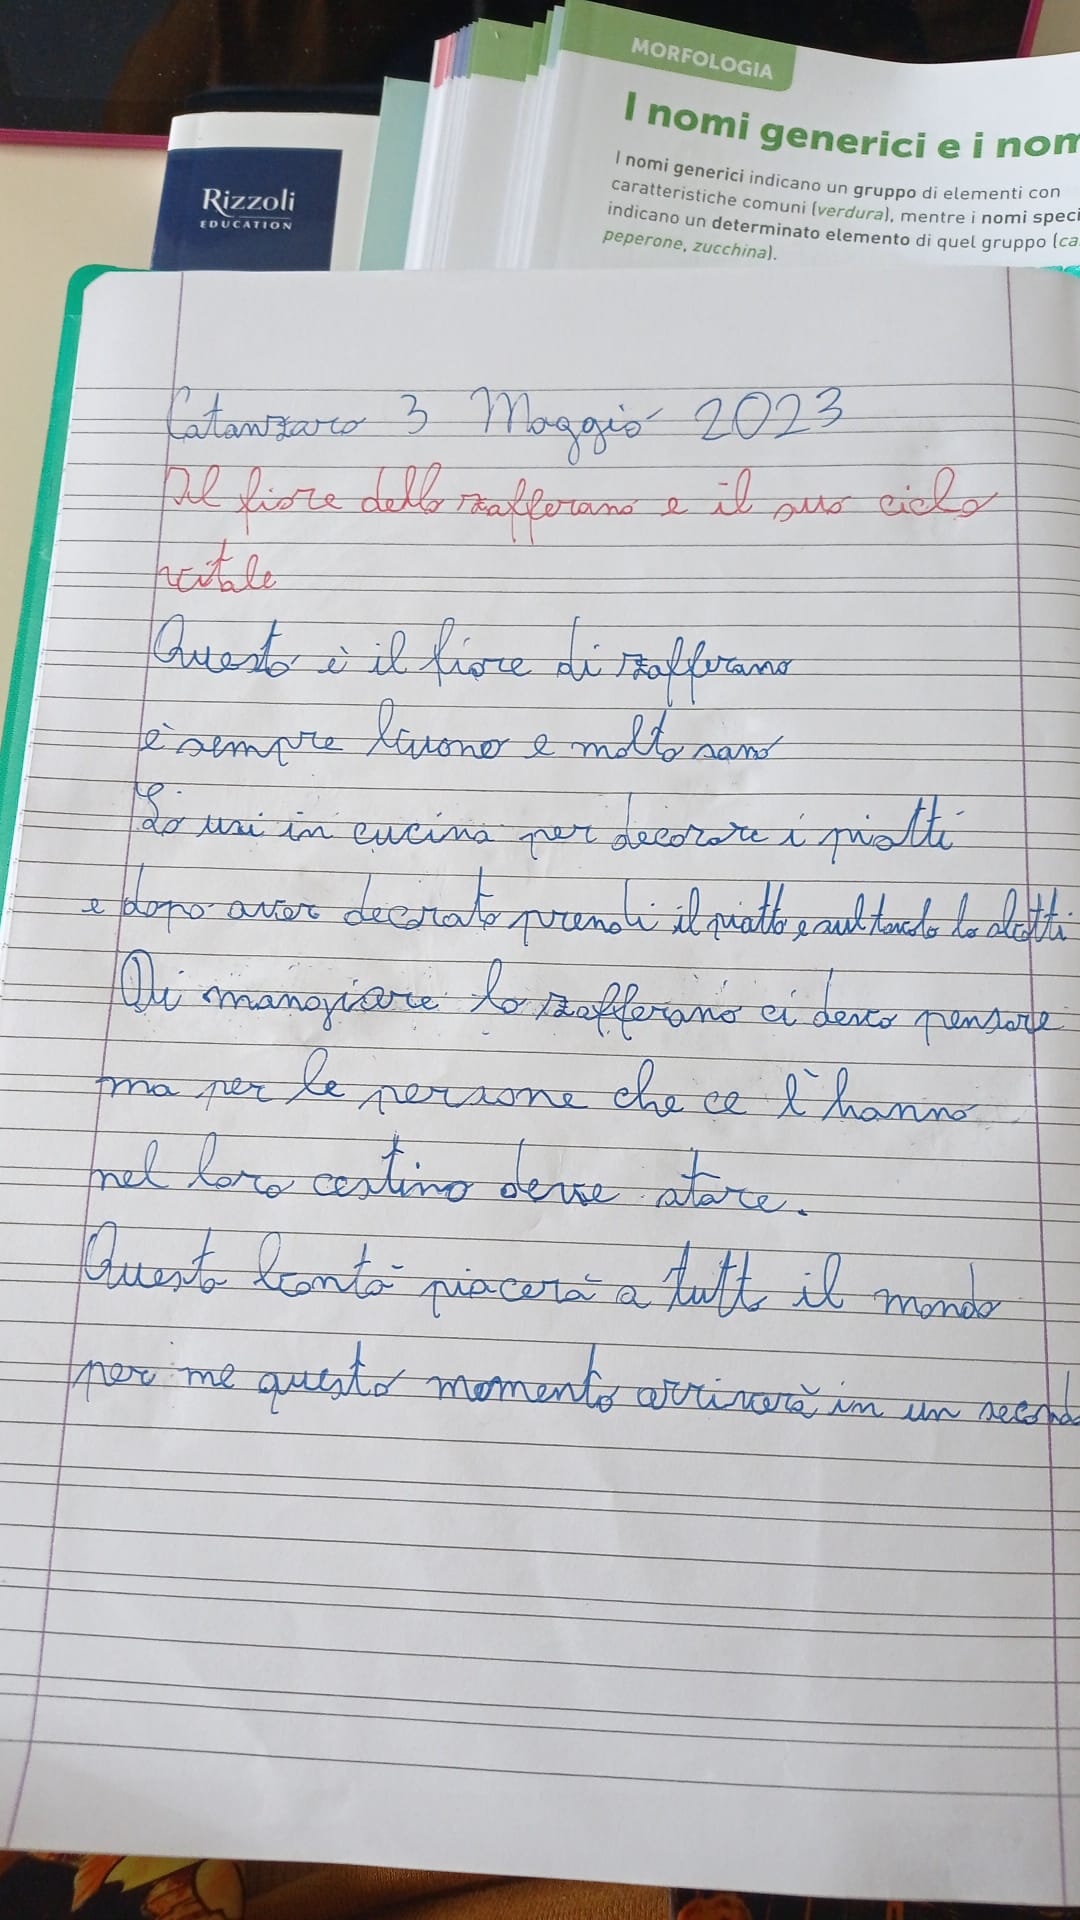 MORFOLOGIA
I nomi generici e i nom
I nomi generici indicano un gruppo di elementi con
caratteristiche comuni (verdura), mentre i nomi speci
indicano un determinato elemento di quel gruppo (ca
peperone, zucchina).
Rizzoli
EDUCATION
Catanzaro 3 Maggio 2023
Il fiore dello zafferano e il suo ciclo
vitale
Questo è il fiore di zafferano
è sempre buono e molto sano
Lo usi in cucina per decorare i piatti
e dopo aver decorato prendi il piatto e sul tavolo lo sbatti
Di mangiare lo zafferano ci devo pensare
ma per le persone che ce l'hanno
nel loro cestino deve stare.
Questa bontà piacerà a tutto il mondo
per me questo momento arriverà in un secondo